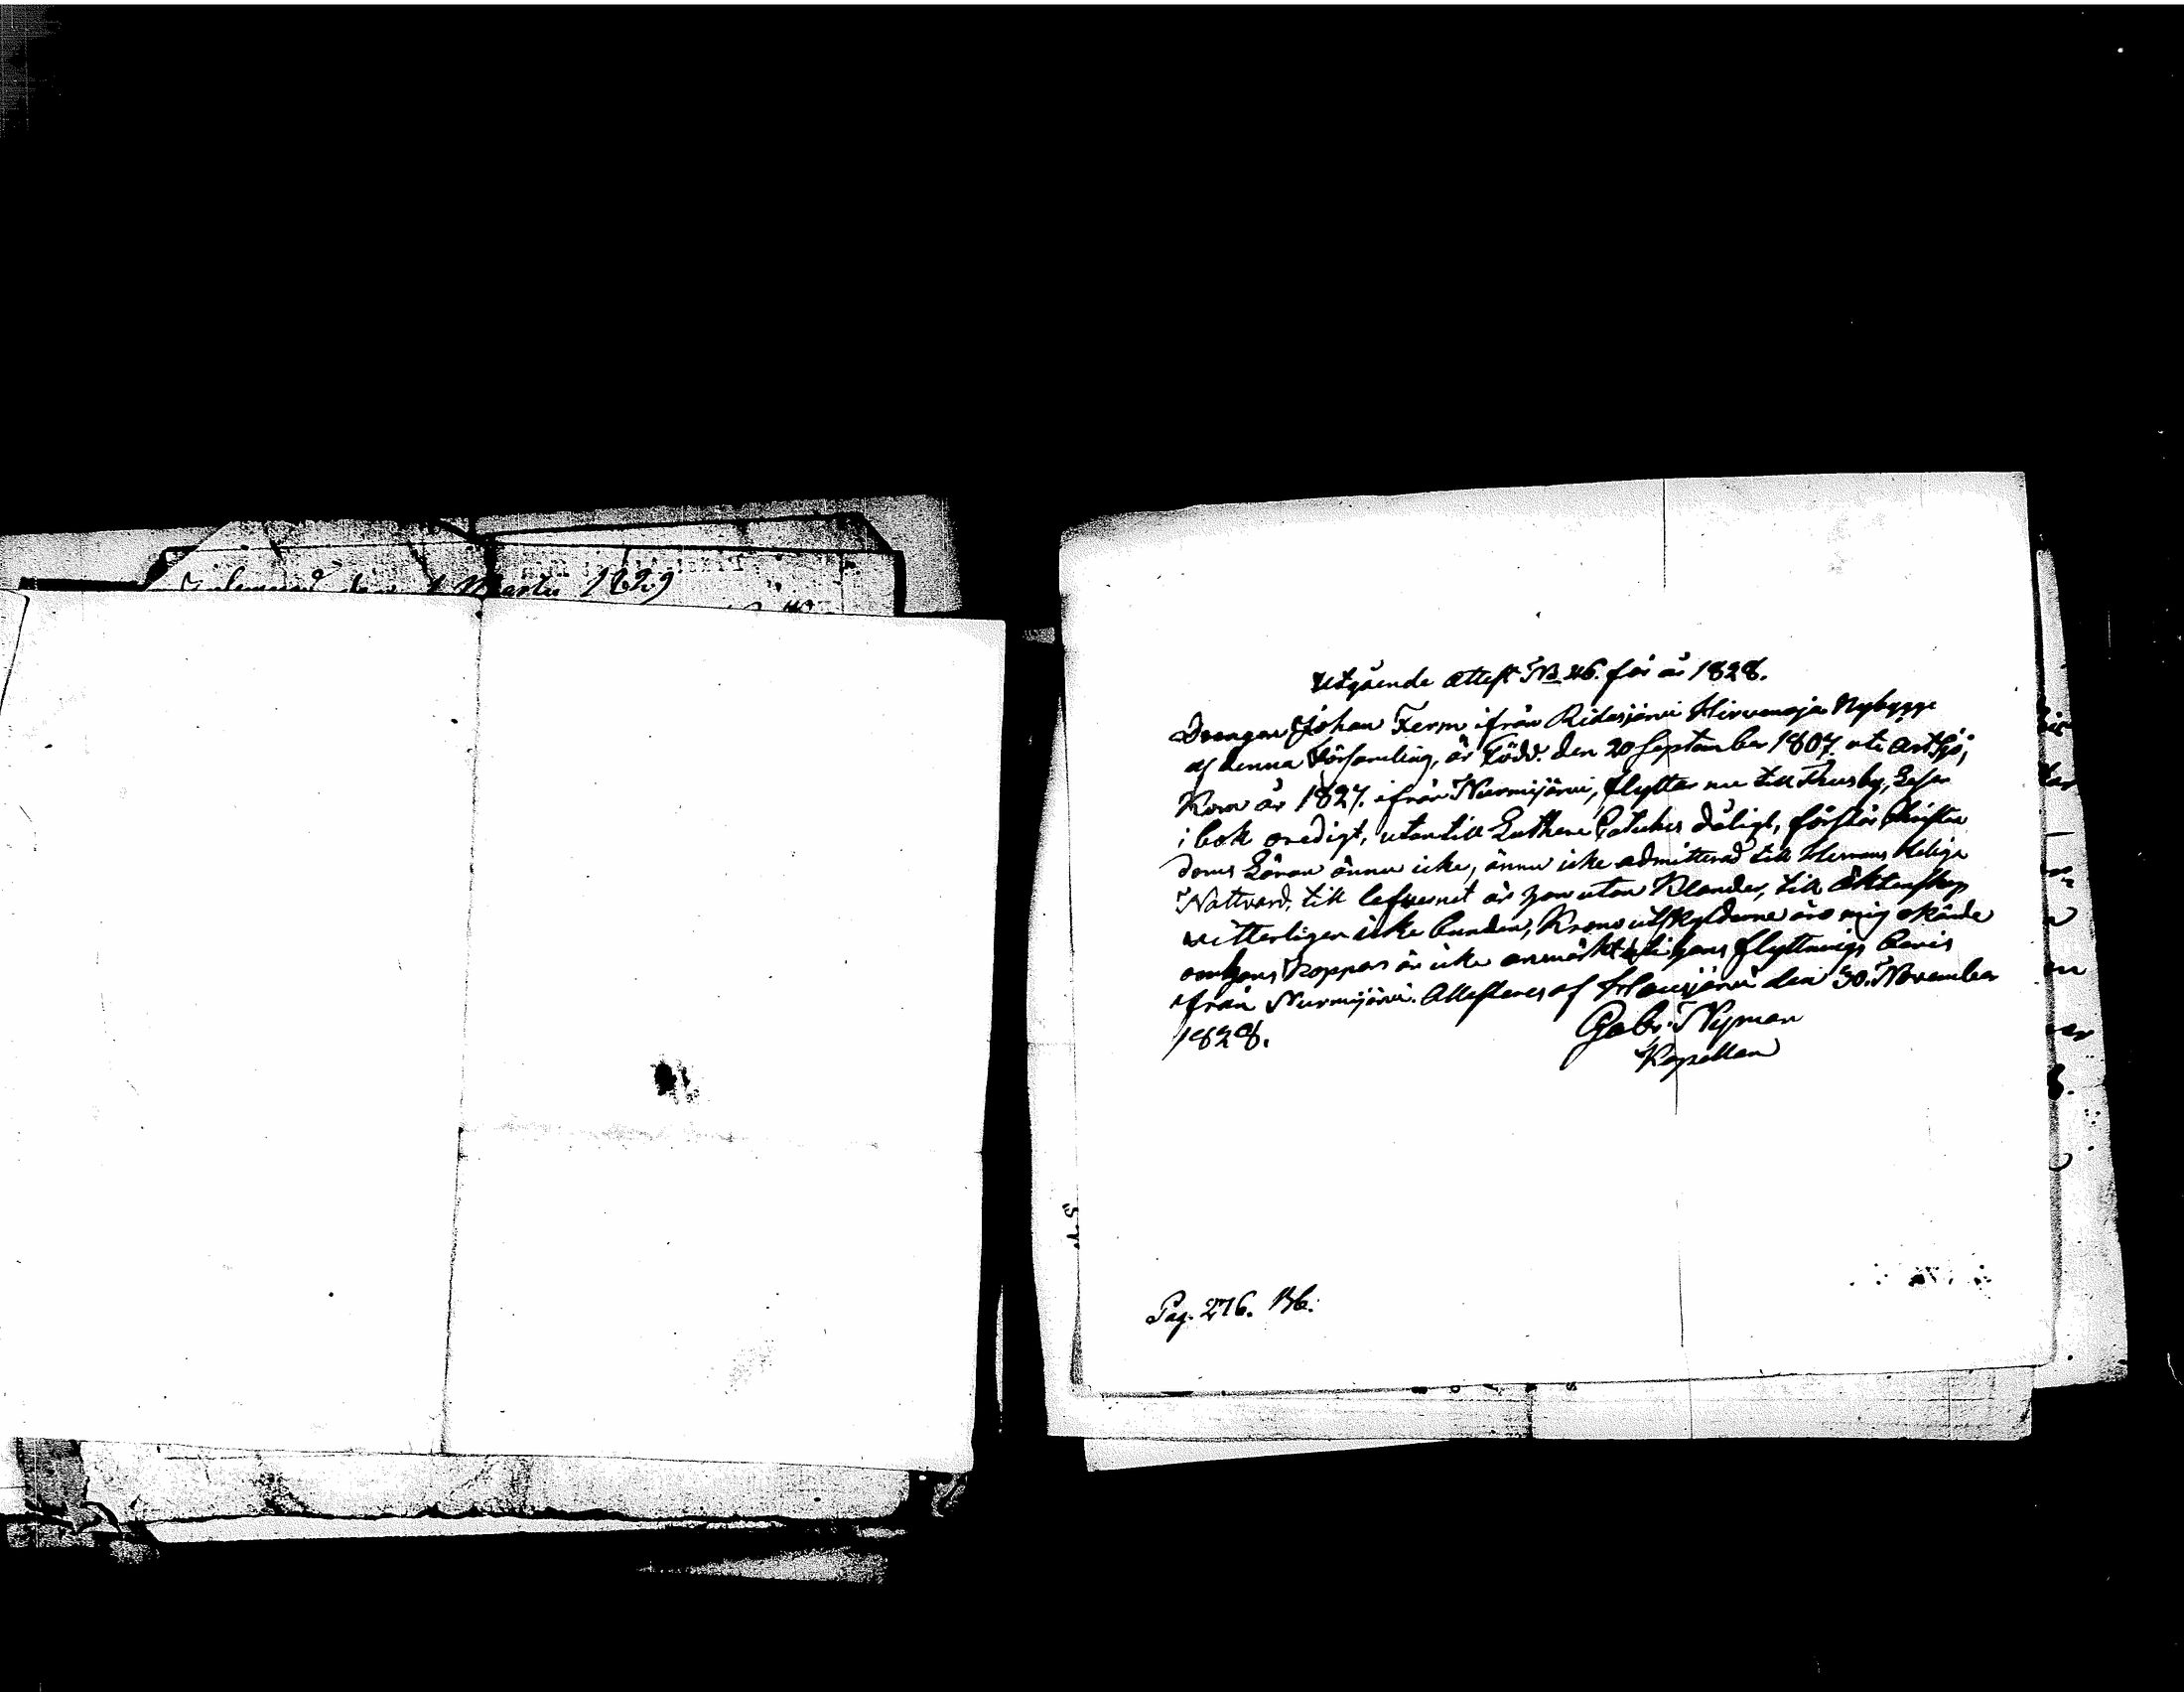 Martii 1829
Utgående Attest No 46. för år 1828.
Drengen Johan Ferm ifrån Ridasjärvi Hirvenoja Nybygge
af denna Församling, är Född den 20 September 1807. uti Artsjö,
Kom år 1827. ifrån Nurmijärvi, flyttar nu till Thusby, Läser
i bok oredigt, utantill Lutheri Cateches dåligt, förstår Christen
doms Läran ännu icke, ännu icke admitterad till Herrans Heliga
Nattvard, till lefvernet är han utan Klander, till Äktenskap
vitterligen icke bunden, Krono utskylderne äro mig okände
om hans Koppor är icke anmärkt uti hans flyttnings bevis
ifrån Nurmijärvi. Attesteres af Hausjärvi den 30. November
1828.
Gabr. Nyman
Kapellan
Pag. 276.